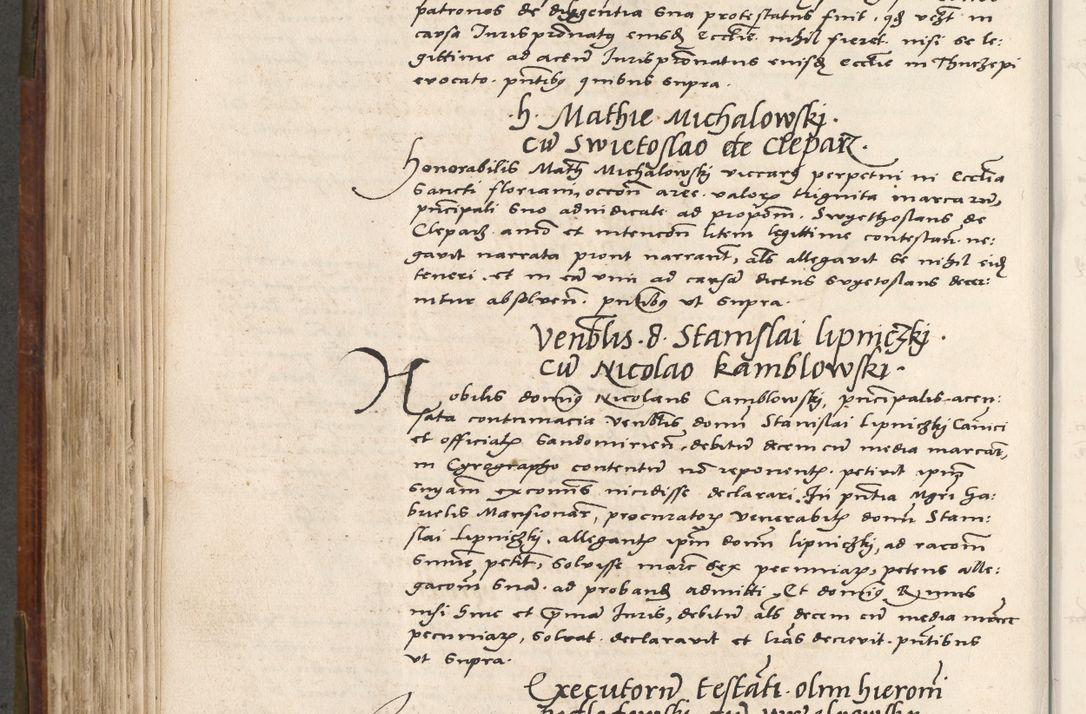 patronos de diligentia sua protestatus fuit, qd vczt in
causa Jurispronatus eiusd Ecclie nihil fieret, nisi se le:
gittime ad actum Jurispronatus euisd Ecclie in Thuczepi
evocato. pntibus quibus supra.
h. Mathie Michalowskj.
cu Swietoslao de Clepar.
Honorabilis Math Michalowskj viccarius perpetui in Ecclia
Sancti floriani, occon aree valor triginta marcaru,
pncipali suo adiudicate ad propom. Swyethoslaus de
Clepar. anio et intencon litem legittime contestan. ne:
gavit narrata prout narrant, als allegavit se nihil eid
teneri. et in ea vnu ad causa dictus svyetoslaus decer:
nitur absolven. pntibus vt supra.
Venblis. d. Stanislai lipniczkj.
cu Nicolao kamblowskj.
Nobilis dominus Nicolaus Camblowskj, pncipalis, acen:
sata contumacia venblis domi Stanislai lipniczkj Canici
et officialis Sandomirien, debitu decem cu media marcar,
in Cyrographo contentu no reponentis. petivit ipm
suyam excomis incidisse declarari. In pntia Mgri Ga:
brielis Mansionar, procurator venerabilis domi Stani:
slai Lipniczkj, allegantis ipm domi lipniczkj, ad racom
summe petit, solvisse marc sex pecuniar, petens alle:
gacom suam ad proband admitti. Et dominus R. mus
nisi sme et Cpmar Juris, debitu als decem cu media marc
pecuniar, solvat. declaravit et lras decrevit. pntibus
vt supra.
Executoru testati. olim hieroni